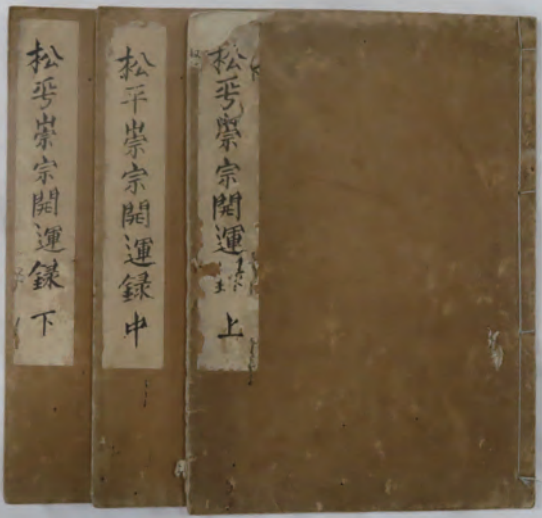 松平崇宗開運録 上
松平崇宗開運録 中
松平崇宗開運録 下